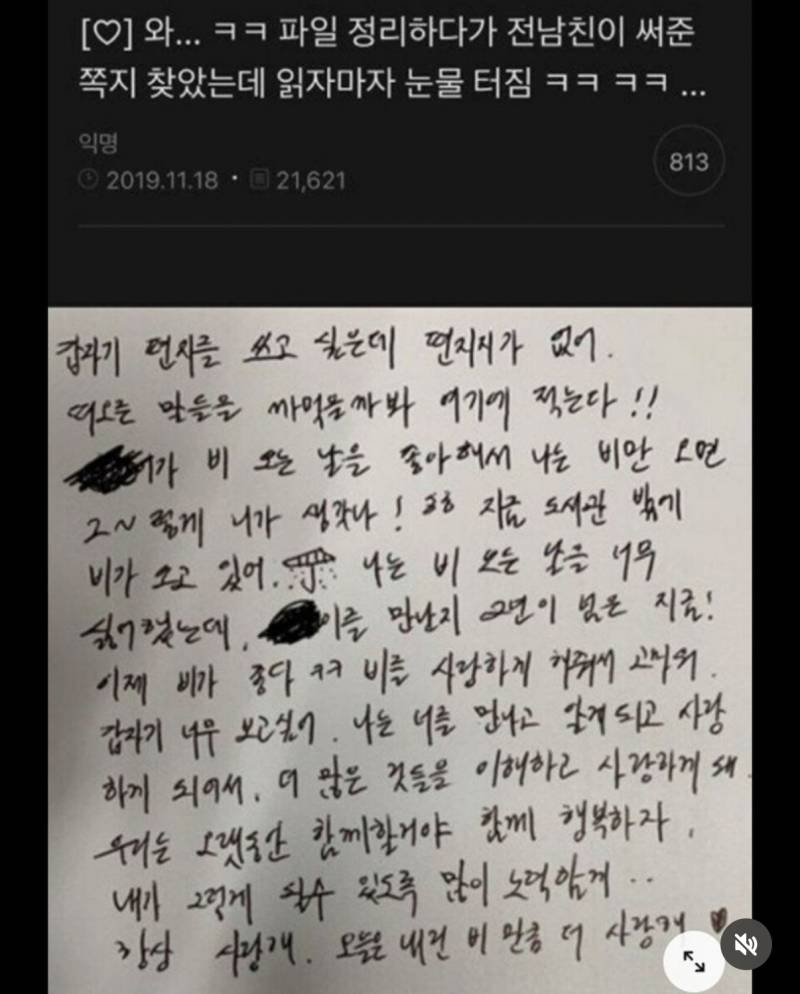 [♡] 와... ㅋㅋ 파일 정리하다가 전남친이 써준
쪽지 찾았는데 읽자마자 눈물 터짐 ㅋㅋ ㅋㅋ ...
익명
2019.11.18 · 21,621
813
갑자기 편지를 쓰고 싶은데 편지지가 없어.
떠오른 말들을 까먹을까봐 여기에 적는다!!
가 비 오는 날을 좋아해서 나는 비만 오면
그~렇게 니가 생각나! 지금 도서관 밖에
비가 오고 있어. 나는 비 오는 날을 너무
싫어했는데, 이를 만난지 2년이 넘은 지금!
이제 비가 좋다 ㅋㅋ 비를 사랑하게 해줘서 고마워.
갑자기 너무 보고싶어. 나는 너를 만나고 알게 되고 사랑
하게 되어서, 더 많은 것들을 이해하고 사랑하게 돼.
우리는 오랫동안 함께할거야 함께 행복하자.
내가 그렇게 될수 있도록 많이 노력할게..
항상 사랑해. 오늘은 내린 비 만큼 더 사랑해 ♥